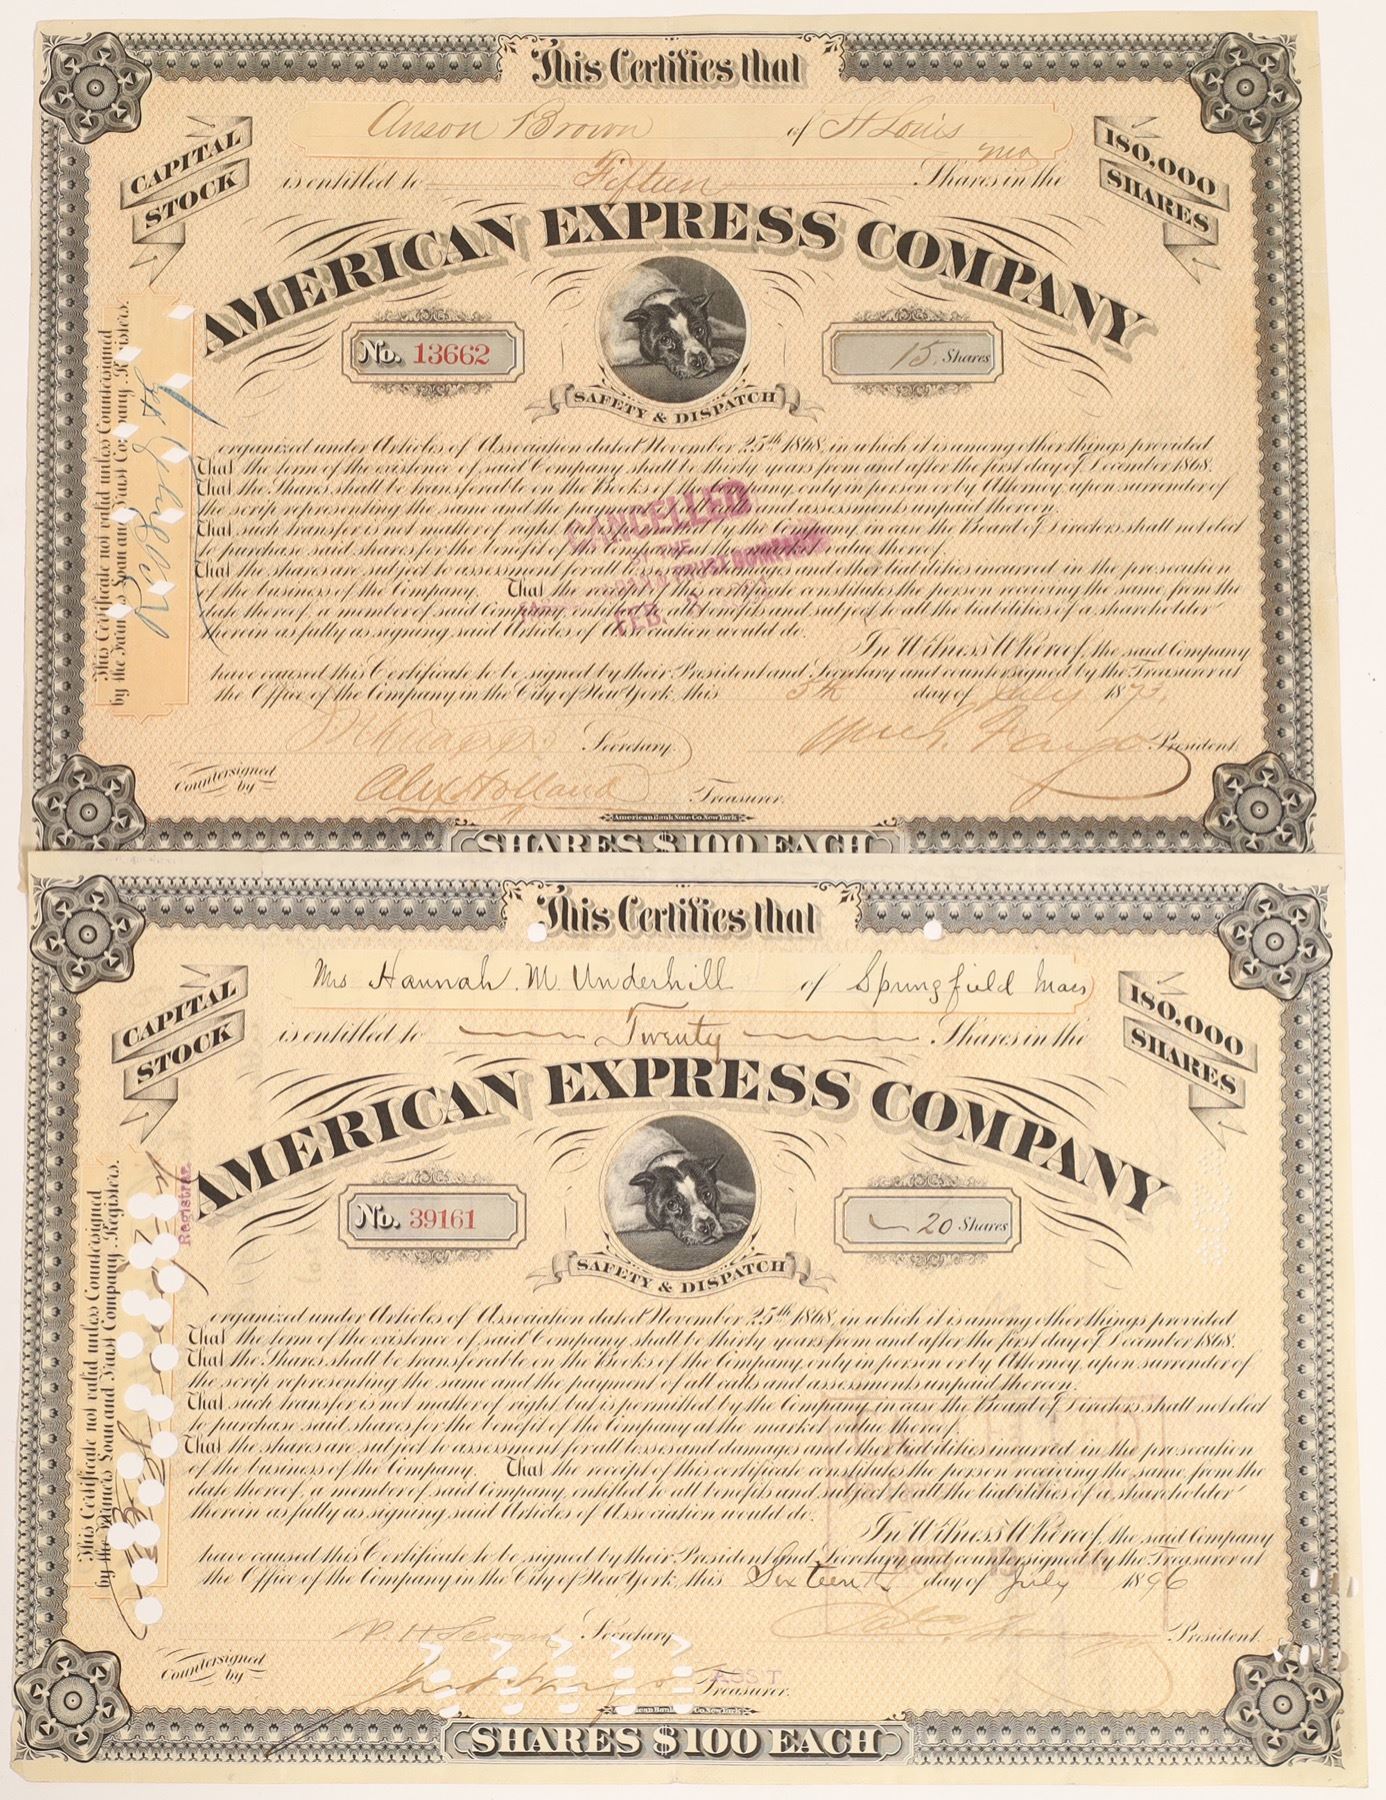 This Certifies that
Anson Brown of St Louis
Mo
CAPITAL STOCK
180,000 SHARES
is entitled to Fifteen Shares in the
AMERICAN EXPRESS COMPANY
No. 13662
15 Shares
SAFETY & DISPATCH
This Certificate not valid unless Countersigned
by the Farmers Loan and Trust Company, Registers.
organized under Articles of Association dated November 25th 1868, in which it is among other things provided
That the term of the existence of said Company shall be thirty years from and after the first day of December 1868.
That the Shares shall be transferable on the Books of the Company, only in person or by Attorney, upon surrender of
the scrip representing the same and the payment of all calls and assessments unpaid thereon.
That such transfer is not matter of right, but is permitted by the Company, in case the Board of Directors shall not elect
to purchase said shares for the benefit of the Company at the market value thereof.
That the shares are subject to assessment for all losses and damages and other liabilities incurred in the prosecution
of the business of the Company. That the receipt of this certificate constitutes the person receiving the same, from the
date thereof, a member of said Company, entitled to all benefits and subject to all the liabilities of a shareholder
therein as fully as signing said Articles of Association would do.
CANCELLED
BY THE
LOAN & TRUST COMPANY
FEB.
In Witness Whereof, the said Company
have caused this Certificate to be signed by their President and Secretary and countersigned by the Treasurer at
the Office of the Company in the City of New York, this 5th day of July 1873.
Secretary. Wm G. Fargo President.
Countersigned by Alex Holland Treasurer.
American Bank Note Co. New York
SHARES $100 EACH
This Certifies that
Mrs Hannah M Underhill of Springfield Mass
CAPITAL STOCK
180,000 SHARES
is entitled to Twenty Shares in the
AMERICAN EXPRESS COMPANY
No. 39161
20 Shares
SAFETY & DISPATCH
This Certificate not valid unless Countersigned
by the Farmers Loan and Trust Company, Registers.
Registrar.
organized under Articles of Association dated November 25th 1868, in which it is among other things provided
That the term of the existence of said Company shall be thirty years from and after the first day of December 1868.
That the Shares shall be transferable on the Books of the Company, only in person or by Attorney, upon surrender of
the scrip representing the same and the payment of all calls and assessments unpaid thereon.
That such transfer is not matter of right, but is permitted by the Company, in case the Board of Directors shall not elect
to purchase said shares for the benefit of the Company at the market value thereof.
That the shares are subject to assessment for all losses and damages and other liabilities incurred in the prosecution
of the business of the Company. That the receipt of this certificate constitutes the person receiving the same, from the
date thereof, a member of said Company, entitled to all benefits and subject to all the liabilities of a shareholder
therein as fully as signing said Articles of Association would do.
In Witness Whereof, the said Company
have caused this Certificate to be signed by their President and Secretary and countersigned by the Treasurer at
the Office of the Company in the City of New York, this Sixteenth day of July 1896
Secretary. President.
Countersigned by ASS'T Treasurer.
American Bank Note Co. New York
SHARES $100 EACH